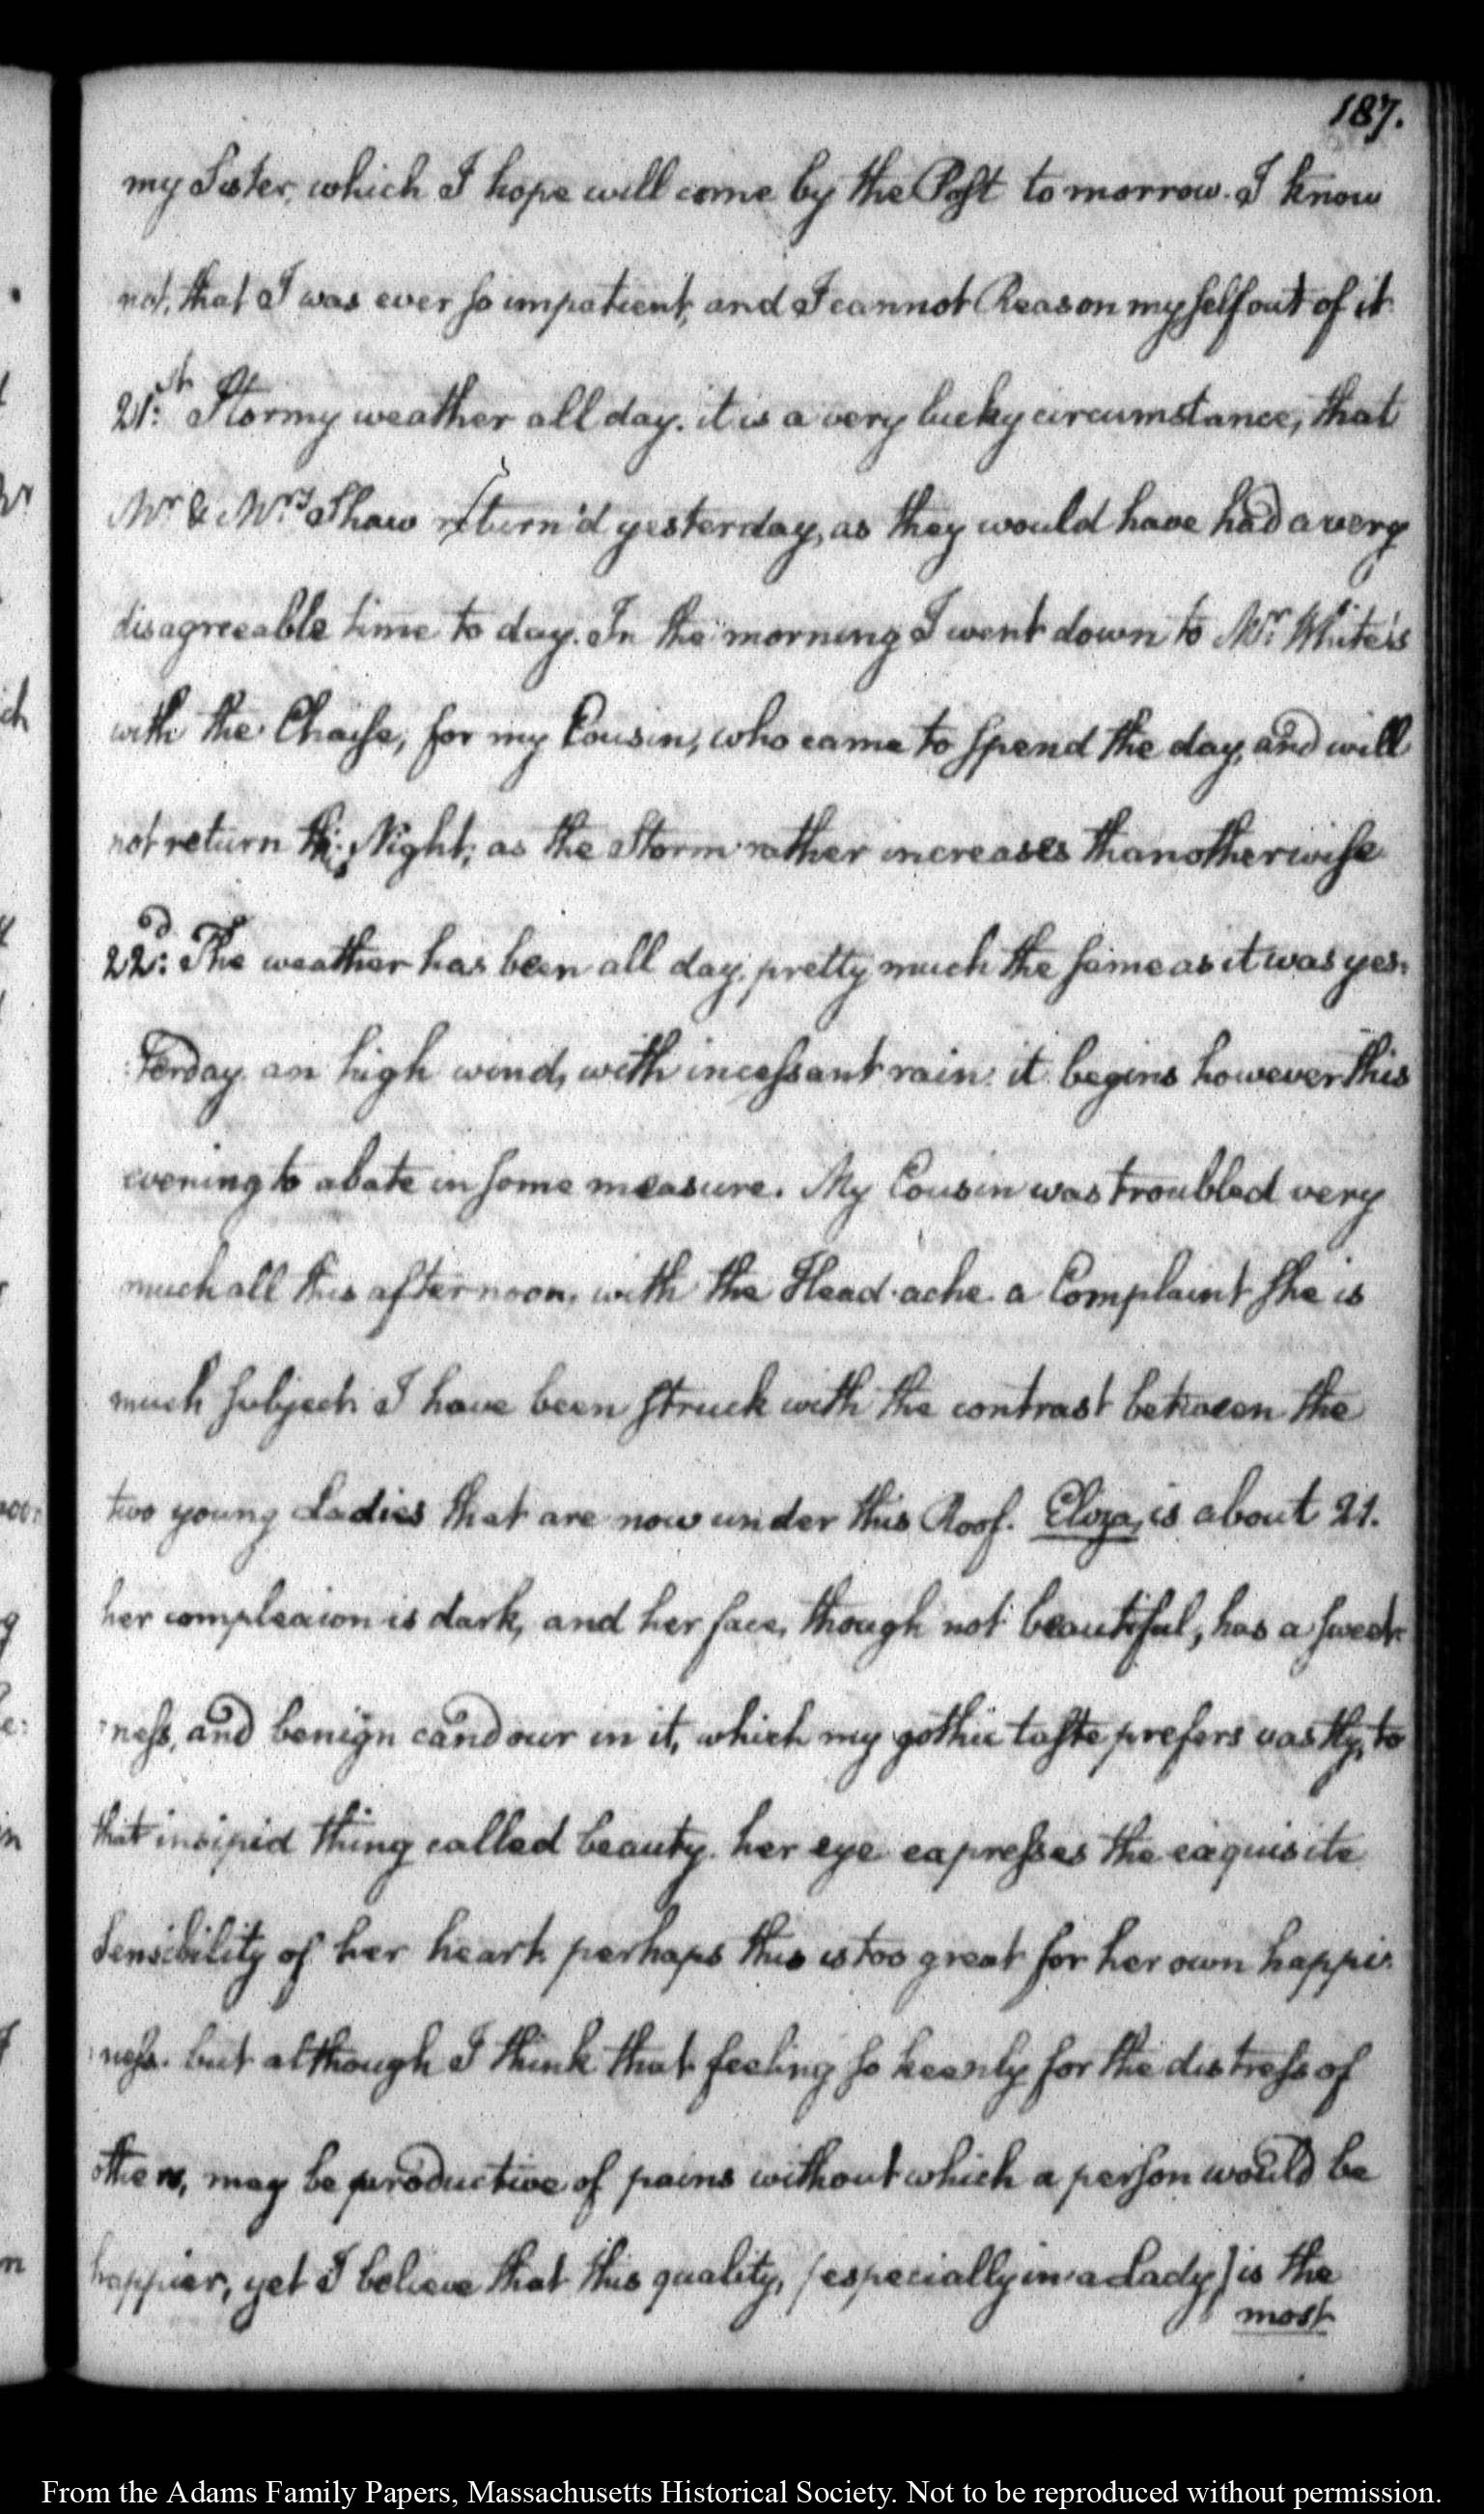 187.
my Sister, which I hope will come by the Post to morrow. I know
not, that I was ever so impatient, and I cannot Reason myself out of it
21st: Stormy weather all day. it is a very lucky circumstance, that
Mr. & Mrs. Shaw return'd yesterday, as they would have had a very
disagreeable time to day. In the morning I went down to Mr. White's
with the Chaise, for my Cousin, who came to spend the day, and will
not return this Night, as the Storm rather increases than otherwise
22d: The weather has been all day, pretty much the same as it was yes-
terday. an high wind, with incessant rain. it begins however this
evening to abate in some measure. My Cousin was troubled very
much all this afternoon, with the Head-ache. a Complaint she is
much subject. I have been struck with the contrast between the
two young Ladies that are now under this Roof. Eliza, is about 21.
her complexion is dark, and her face, though not beautiful, has a sweet-
ness, and benign candour in it, which my gothic taste prefers vastly, to
that insipid thing called beauty. her eye expresses the exquisite
Sensibility of her heart. perhaps this is too great for her own happi-
ness. but although I think that feeling so keenly for the distress of
others, may be productive of pains without which a person would be
happier, yet I believe that this quality, (especially in a Lady) is the
most
From the Adams Family Papers, Massachusetts Historical Society. Not to be reproduced without permission.